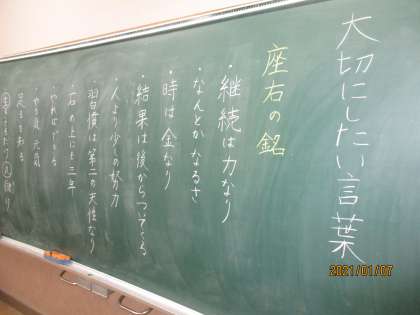 大切にしたい言葉
座右の銘
・継続は力なり
・なんとかなるさ
・時は金なり
・結果は後からついてくる
・人より少しの努力
・習慣は第二の天性なり
・石の上にも三年
・やればできる
・やる気 元気
足るを知る
2021/01/07